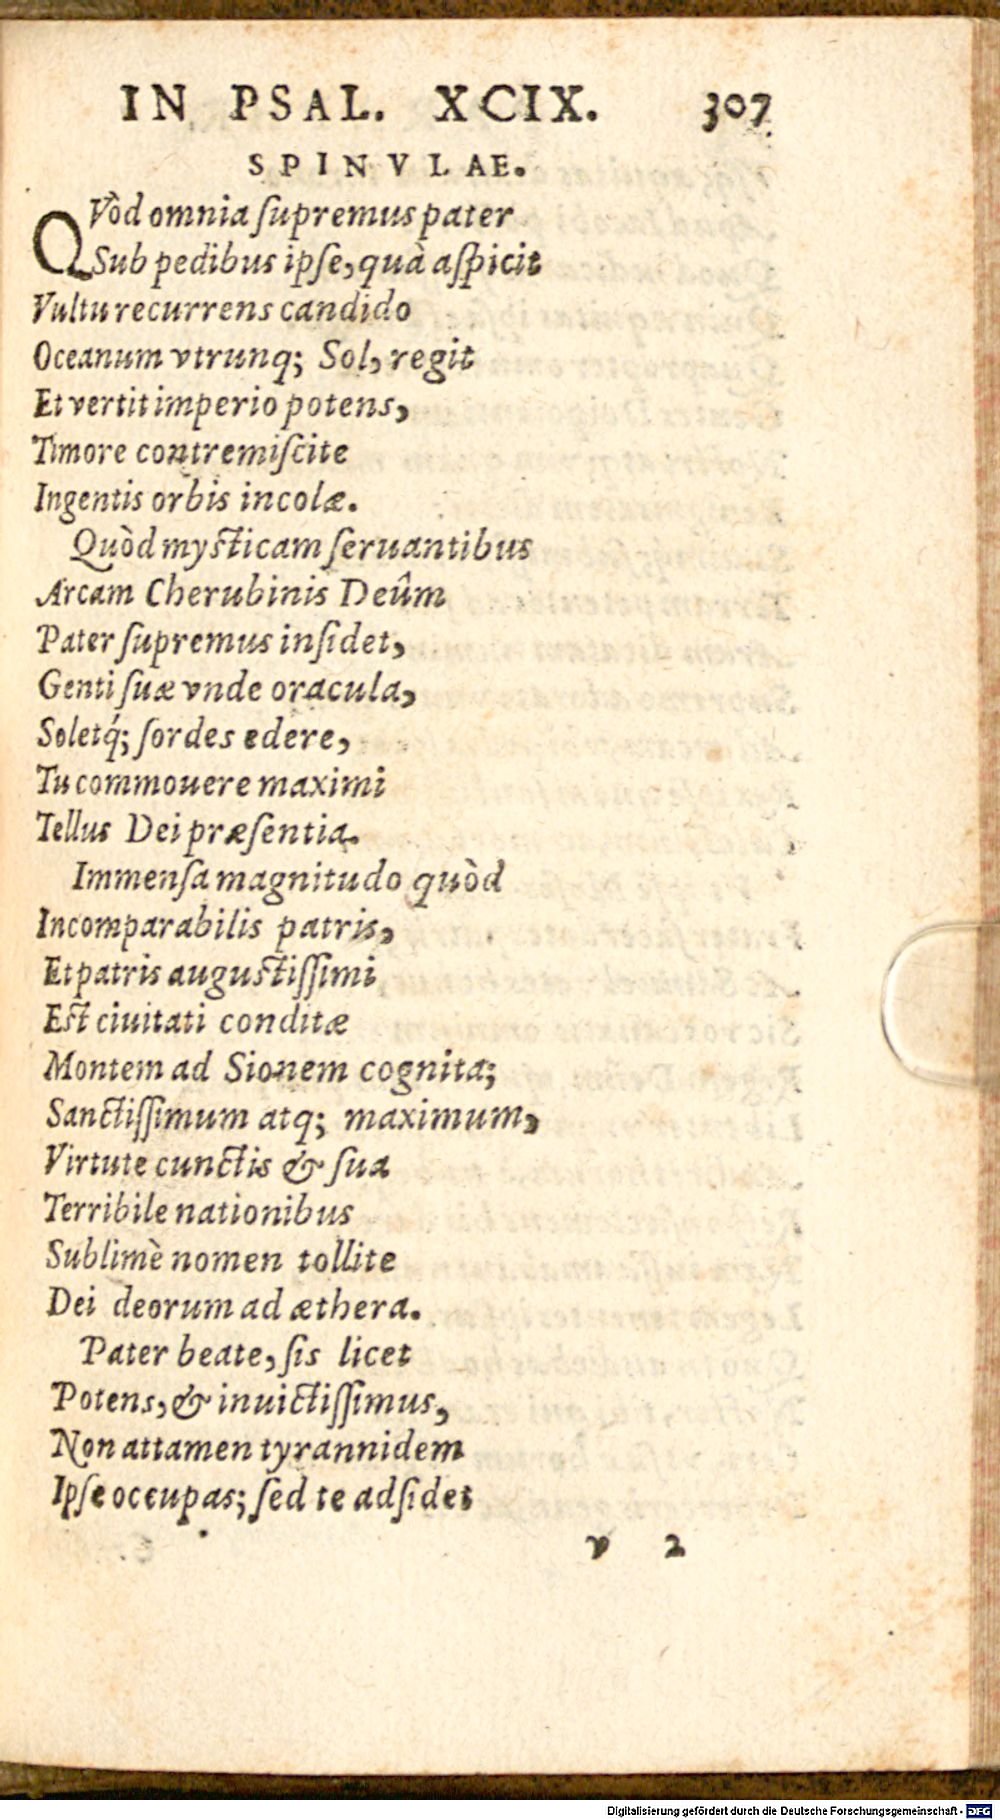 IN PSAL. XCIX. 307
SPINVLAE.
QVòd omnia ſupremus pater
Sub pedibus ipſe, quà aſpicit
Vultu recurrens candido
Oceanum vtrunq; Sol, regit
Et vertit imperio potens,
Timore contremiſcite
Ingentis orbis incolæ.
Quòd myſticam ſeruantibus
Arcam Cherubinis Deûm
Pater ſupremus inſidet,
Genti ſuæ vnde oracula,
Soletq́; ſordes edere,
Tu commouere maximi
Tellus Dei præſentia.
Immenſa magnitudo quòd
Incomparabilis patris,
Et patris auguſtiſſimi,
Eſt ciuitati conditæ
Montem ad Sionem cognita;
Sanctiſſimum atq; maximum,
Virtute cunctis & ſua
Terribile nationibus
Sublimè nomen tollite
Dei deorum ad æthera.
Pater beate, ſis licet
Potens, & inuictiſſimus,
Non attamen tyrannidem
Ipſe occupas; ſed te adſidet
v 2
Digitalisierung gefördert durch die Deutsche Forschungsgemeinschaft - DFG